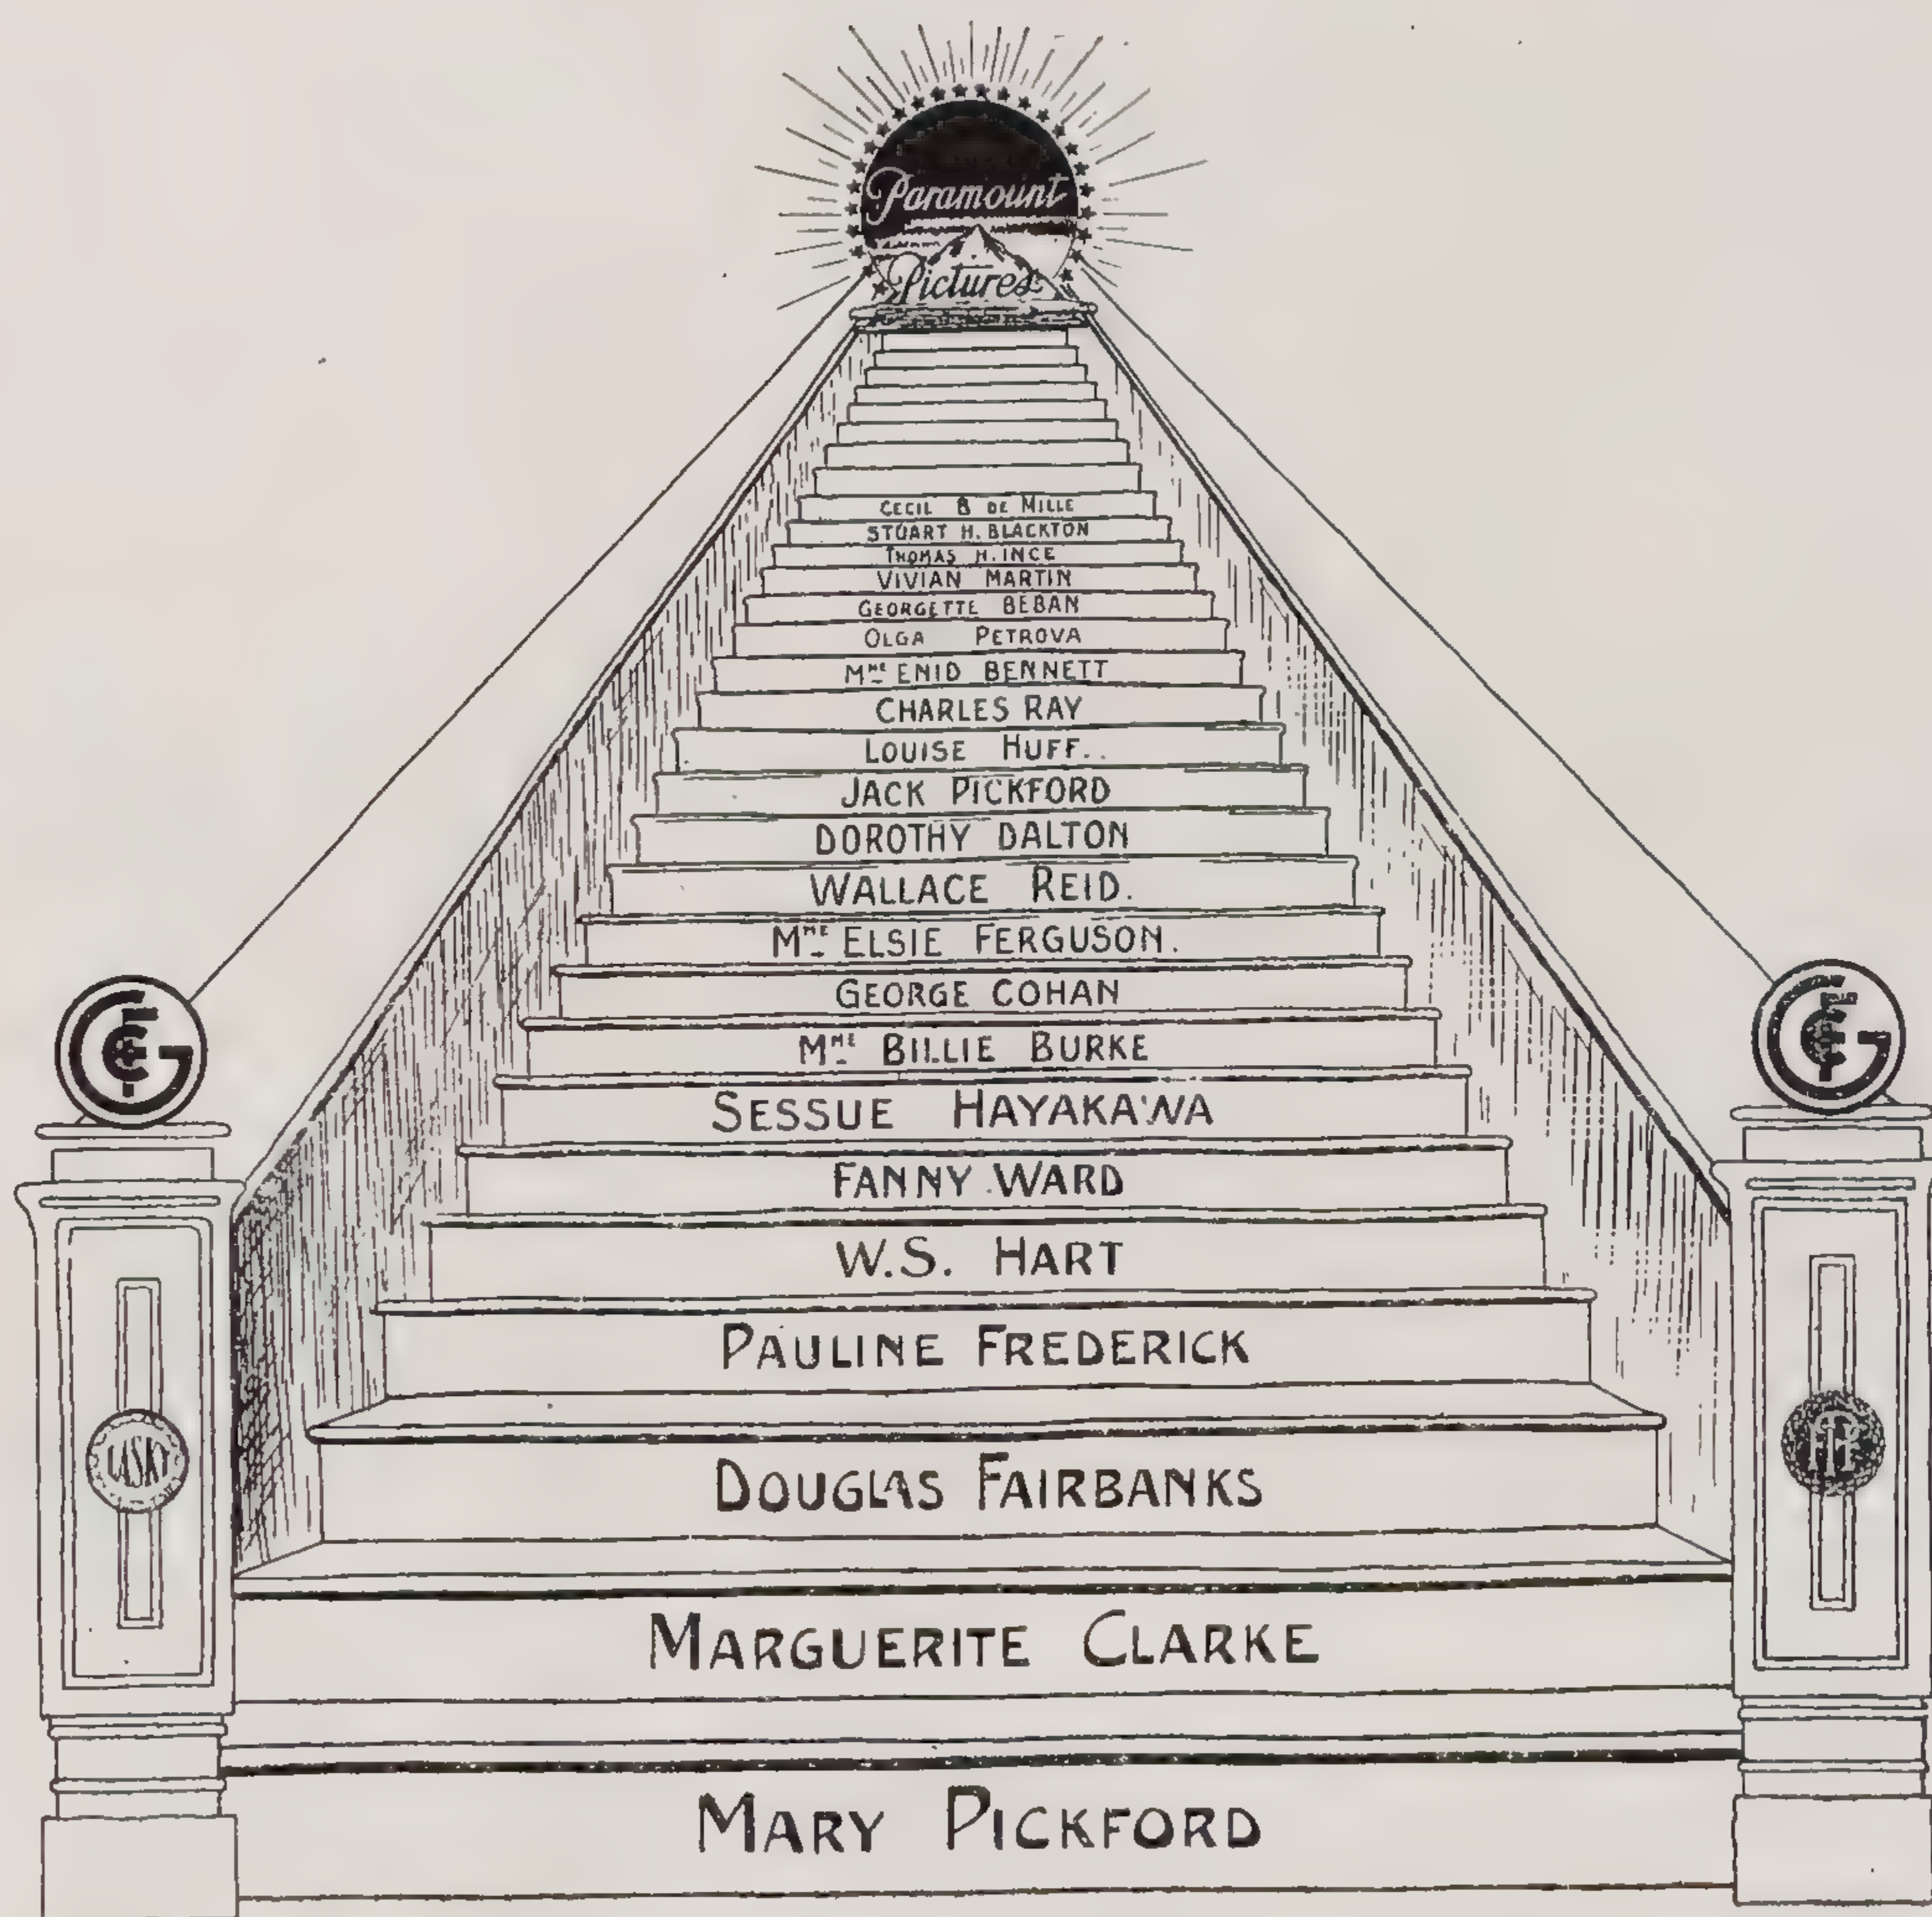 Paramount
Pictures
CECIL B DE MILLE
STUART H. BLACKTON
THOMAS H. INCE
VIVIAN MARTIN
GEORGETTE BEBAN
OLGA PETROVA
MME ENID BENNETT
CHARLES RAY
LOUISE HUFF..
JACK PICKFORD
DOROTHY DALTON
WALLACE REID.
MME ELSIE FERGUSON.
GEORGE COHAN
MME BILLIE BURKE
SESSUE HAYAKAWA
FANNY WARD
W.S. HART
PAULINE FREDERICK
LASKY
DOUGLAS FAIRBANKS
MARGUERITE CLARKE
MARY PICKFORD